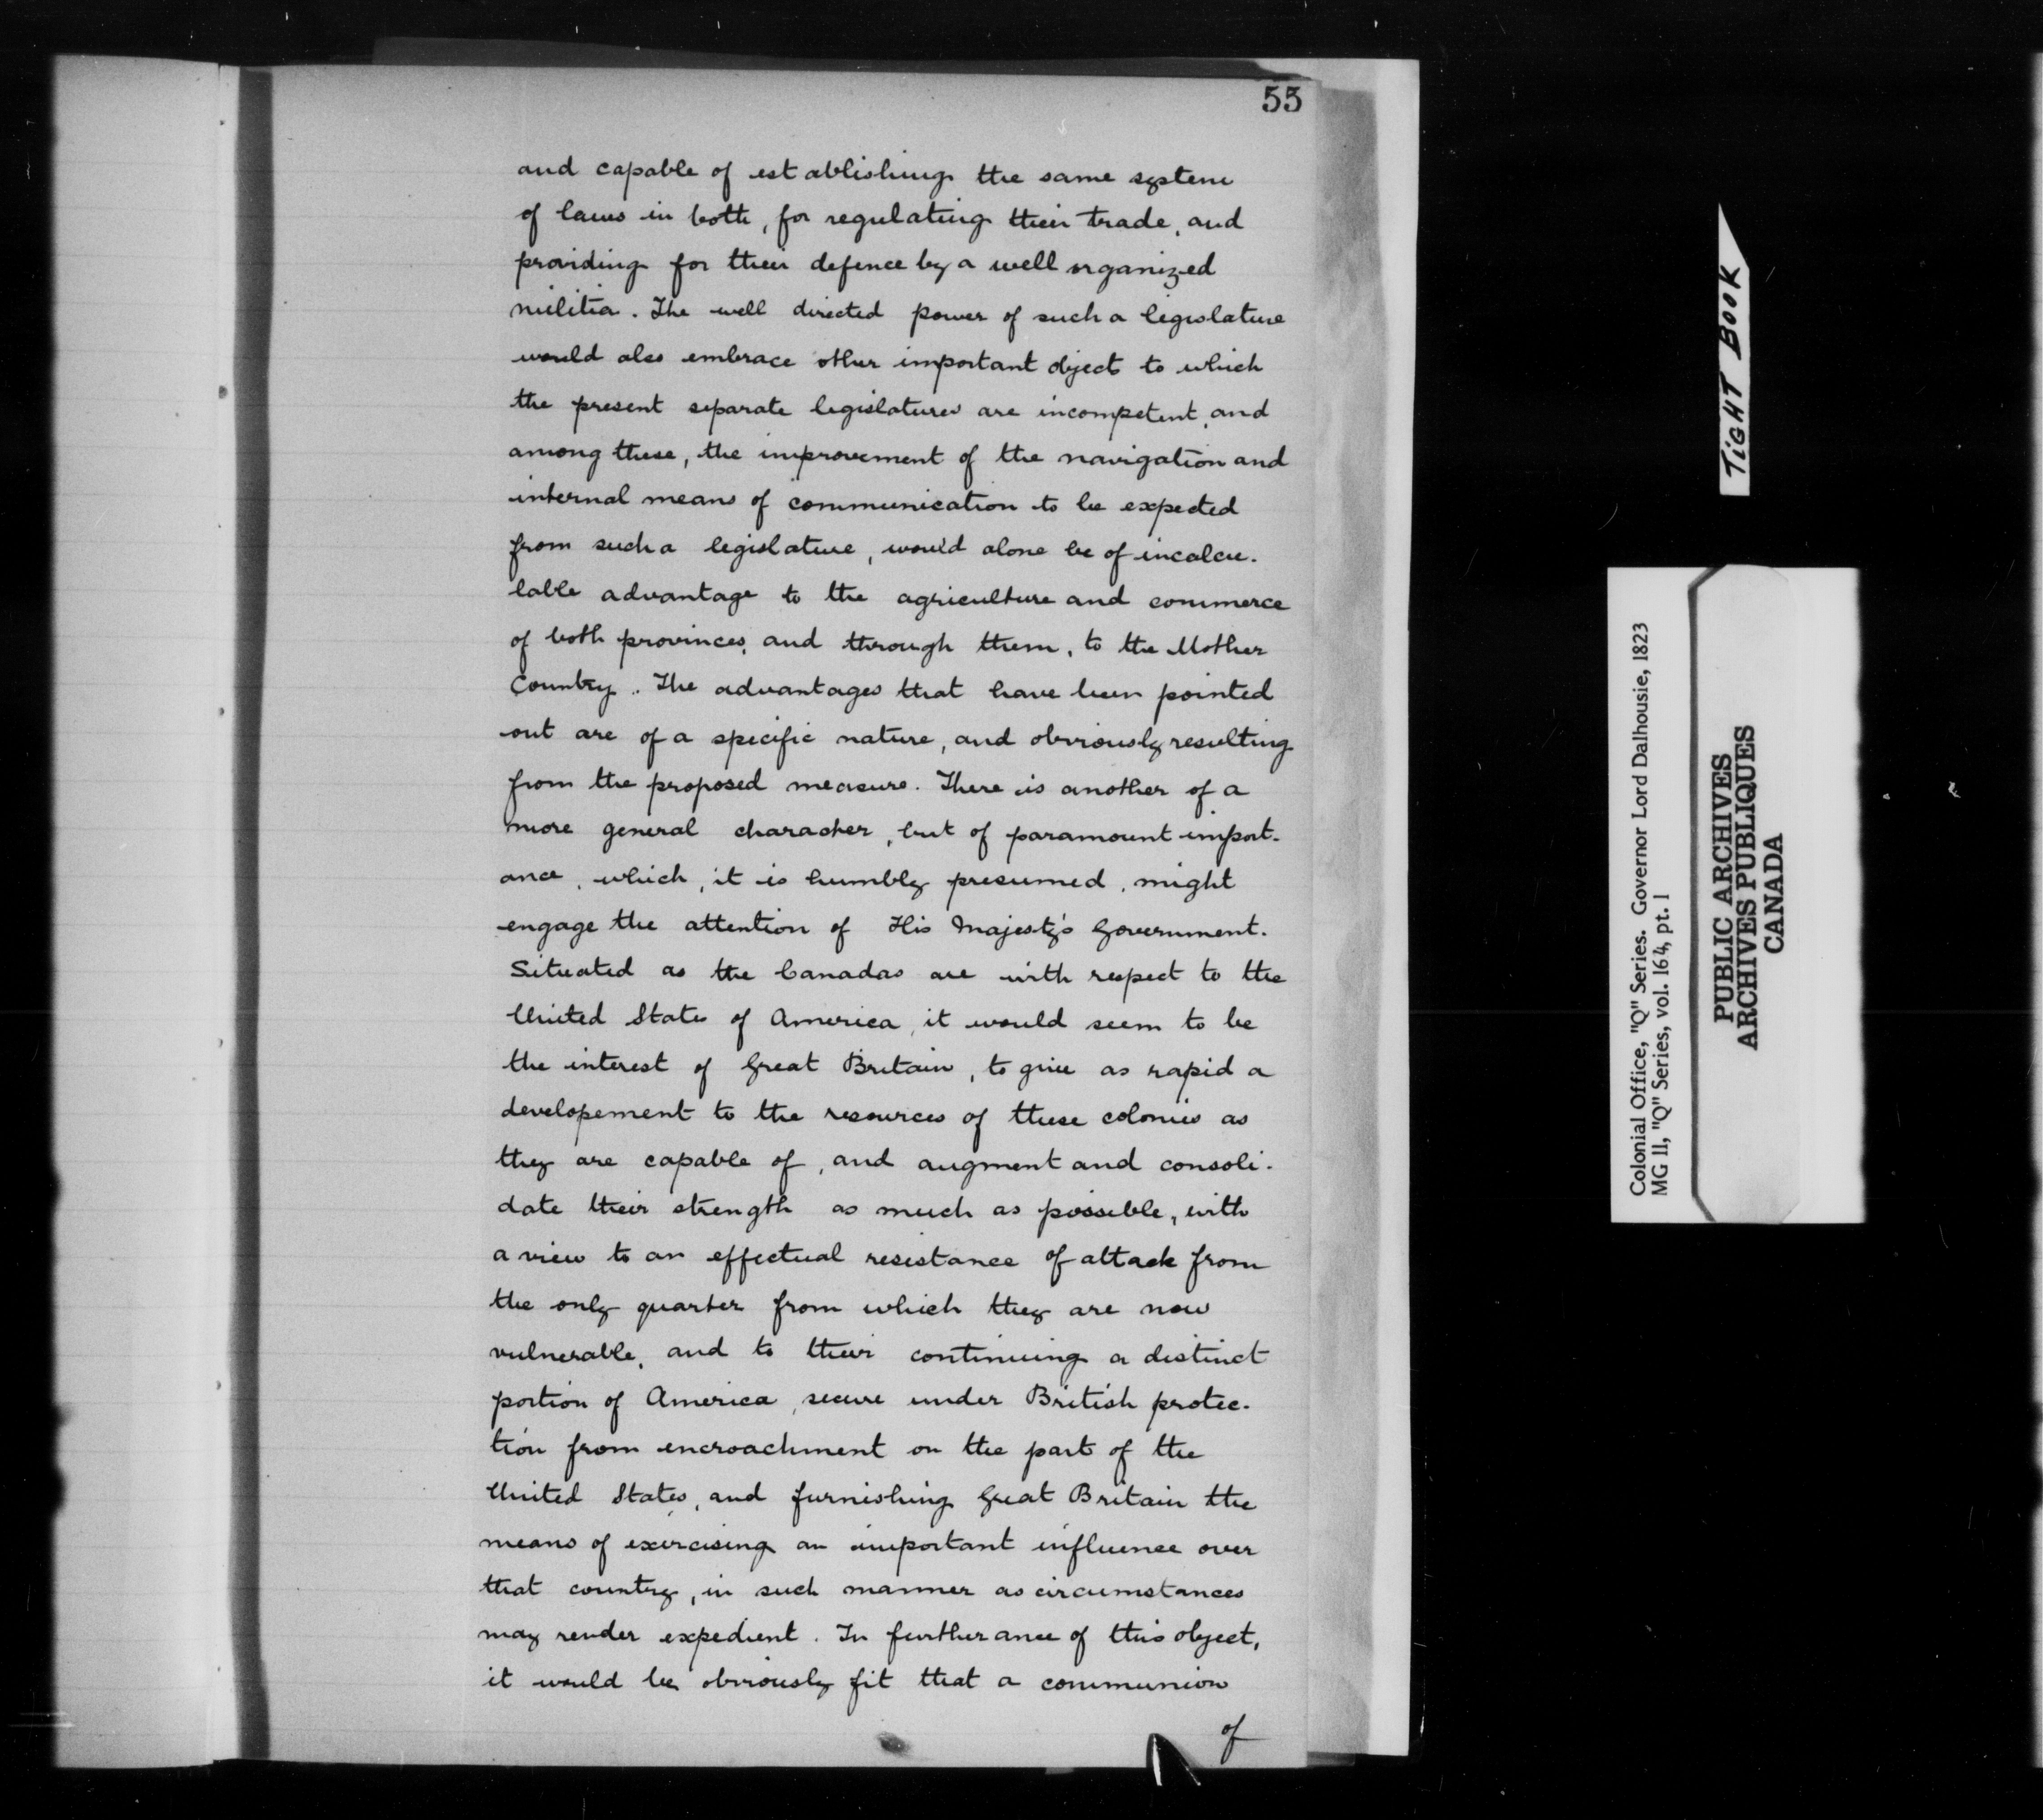 55
and capable of establishing the same system
of laws in both, for regulating their trade, and
providing for their defence by a well organized
militia. The well directed power of such a legislature
would also embrace other important objects to which
the present separate legislatures are incompetent, and
among these, the improvement of the navigation and
internal means of communication to be expected
from such a legislature, would alone be of incalcu-
lable advantage to the agriculture and commerce
of both provinces, and through them, to the Mother
Country. The advantages that have been pointed
out are of a specific nature, and obviously resulting
from the proposed measure. There is another of a
more general character, but of paramount import-
ance, which, it is humbly presumed, might
engage the attention of His Majesty's Government.
Situated as the Canadas are with respect to the
United States of America, it would seem to be
the interest of Great Britain, to give as rapid a
developement to the resources of these colonies as
they are capable of, and augment and consoli-
date their strength as much as possible, with
a view to an effectual resistance of attack from
the only quarter from which they are now
vulnerable, and to their continuing a distinct
portion of America, secure under British protec-
tion from encroachment on the part of the
United States, and furnishing Great Britain the
means of exercising an important influence over
that country, in such manner as circumstances
may render expedient. In furtherance of this object,
it would be obviously fit that a communion
of
TIGHT BOOK
Colonial Office, "Q" Series. Governor Lord Dalhousie, 1823
MG 11, "Q" Series, vol. 164, pt. 1
PUBLIC ARCHIVES
ARCHIVES PUBLIQUES
CANADA